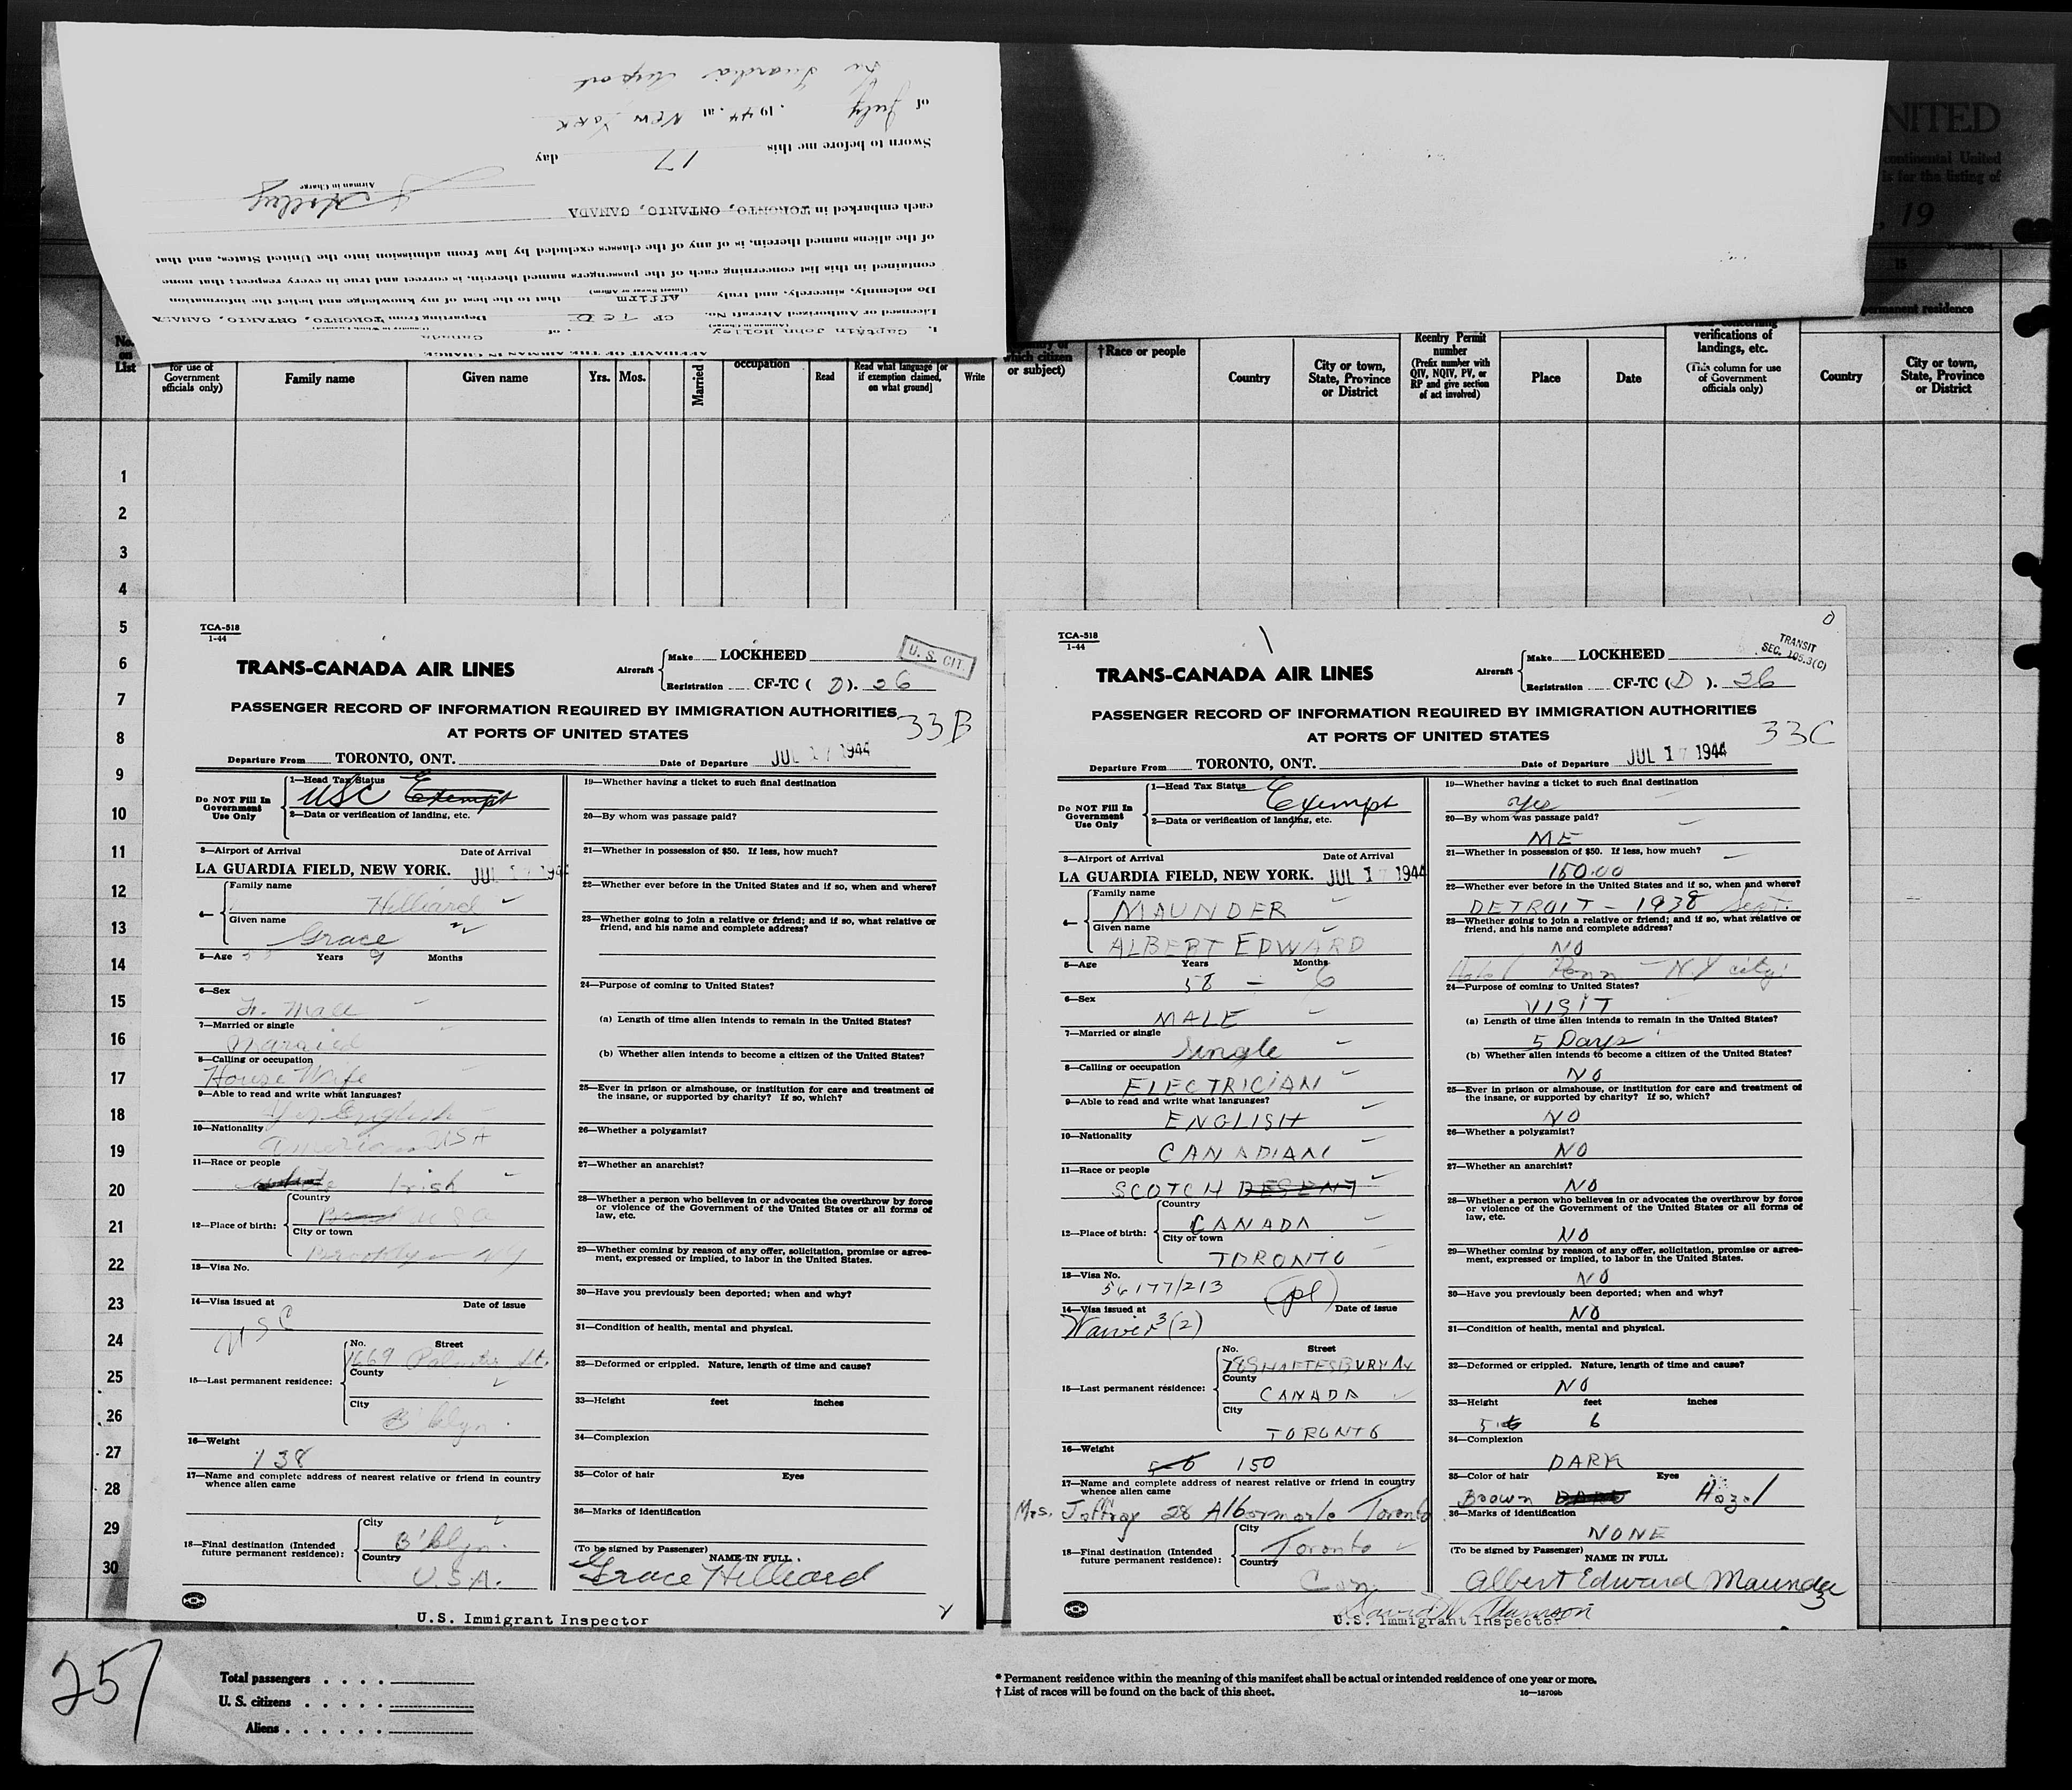 La Guardia Airport
of July, 1944, at NEW YORK
Sworn to before me this 17 day
Airman in Charge
J Holley
each embarked in TORONTO, ONTARIO, CANADA
of the aliens named therein, is of any of the classes excluded by law from admission into the United States, and that
contained in this list concerning each of the passengers named therein, is correct and true in every respect; that none
Do solemnly, sincerely, and truly Affirm that to the best of my knowledge and belief the information
(Insert Swear or Affirm)
Licensed or Authorized Aircraft No. CF TCD Departing from TORONTO, ONTARIO, CANADA
(Airman in Charge)
I, Captain John Holley, of Canada
AFFIDAVIT OF THE AIRMAN IN CHARGE
NITED
continental United
is for the listing of
, 19
15
permanent residence
No. on List
for use of Government officials only)
Family name
Given name
Yrs.
Mos.
Married
occupation
Read
Read what language [or if exemption claimed, on what ground]
Write
which citizen or subject)
†Race or people
Country
City or town, State, Province or District
Reentry Permit number
(Prefix number with QIV, NQIV, PV, or RP and give section of act involved)
Place
Date
verifications of landings, etc.
(This column for use of Government officials only)
Country
City or town, State, Province or District
1
2
3
4
5
6
7
8
9
10
11
12
13
14
15
16
17
18
19
20
21
22
23
24
25
26
27
28
29
30
TCA-518
1-44
TRANS-CANADA AIR LINES
Aircraft
Make LOCKHEED
Registration CF-TC (D). 26
U. S. CIT.
PASSENGER RECORD OF INFORMATION REQUIRED BY IMMIGRATION AUTHORITIES
AT PORTS OF UNITED STATES
33B
Departure From TORONTO, ONT. Date of Departure JUL 17 1944
Do NOT Fill In Government Use Only
1—Head Tax Status
USC Exempt
2—Data or verification of landing, etc.
3—Airport of Arrival Date of Arrival
LA GUARDIA FIELD, NEW YORK. JUL 17 194
4— Family name
Hilliard
Given name
Grace
5—Age Years 9 Months
6—Sex
Fe. Male
7—Married or single
Married
8—Calling or occupation
House Wife
9—Able to read and write what languages?
Yes English
10—Nationality
American USA
11—Race or people
Irish
12—Place of birth:
Country
USA
City or town
Brooklyn NY
13—Visa No.
14—Visa issued at Date of issue
USC
15—Last permanent residence:
No. Street
1669 Palmetto St.
County
City
B'klyn.
16—Weight
138
17—Name and complete address of nearest relative or friend in country whence alien came
18—Final destination (Intended future permanent residence):
City
B'klyn.
Country
U.S.A.
19—Whether having a ticket to such final destination
20—By whom was passage paid?
21—Whether in possession of $50. If less, how much?
22—Whether ever before in the United States and if so, when and where?
23—Whether going to join a relative or friend; and if so, what relative or friend, and his name and complete address?
24—Purpose of coming to United States?
(a) Length of time alien intends to remain in the United States?
(b) Whether alien intends to become a citizen of the United States?
25—Ever in prison or almshouse, or institution for care and treatment of the insane, or supported by charity? If so, which?
26—Whether a polygamist?
27—Whether an anarchist?
28—Whether a person who believes in or advocates the overthrow by force or violence of the Government of the United States or all forms of law, etc.
29—Whether coming by reason of any offer, solicitation, promise or agreement, expressed or implied, to labor in the United States.
30—Have you previously been deported; when and why?
31—Condition of health, mental and physical.
32—Deformed or crippled. Nature, length of time and cause?
33—Height feet inches
34—Complexion
35—Color of hair Eyes
36—Marks of identification
(To be signed by Passenger) NAME IN FULL
Grace Hilliard
U.S. Immigrant Inspector
TCA-518
1-44
TRANS-CANADA AIR LINES
Aircraft
Make LOCKHEED
Registration CF-TC (D). 36
TRANSIT
SEC. 105.3(C)
PASSENGER RECORD OF INFORMATION REQUIRED BY IMMIGRATION AUTHORITIES
AT PORTS OF UNITED STATES
33C
Departure From TORONTO, ONT. Date of Departure JUL 17 1944
Do NOT Fill In Government Use Only
1—Head Tax Status
Exempt
2—Data or verification of landing, etc.
3—Airport of Arrival Date of Arrival
LA GUARDIA FIELD, NEW YORK. JUL 17 1944
4— Family name
MAUNDER
Given name
ALBERT EDWARD
5—Age Years Months
58 — 6
6—Sex
MALE
7—Married or single
Single
8—Calling or occupation
ELECTRICIAN
9—Able to read and write what languages?
ENGLISH
10—Nationality
CANADIAN
11—Race or people
SCOTCH DESENT
12—Place of birth:
Country
CANADA
City or town
TORONTO
13—Visa No.
56177/213 (pl)
14—Visa issued at Date of issue
Waiver 3(2)
15—Last permanent residence:
No. Street
78 SHAFTESBURY AV
County
CANADA
City
TORONTO
16—Weight
5-6 150
17—Name and complete address of nearest relative or friend in country whence alien came
Mrs. Jaffray 28 Albermarle Toronto
18—Final destination (Intended future permanent residence):
City
Toronto
Country
Can.
19—Whether having a ticket to such final destination
Yes
20—By whom was passage paid?
ME
21—Whether in possession of $50. If less, how much?
150.00
22—Whether ever before in the United States and if so, when and where?
DETROIT — 1938 Sept.
23—Whether going to join a relative or friend; and if so, what relative or friend, and his name and complete address?
NO
Hotel Penn — N.Y city
24—Purpose of coming to United States?
VISIT
(a) Length of time alien intends to remain in the United States?
5 Days
(b) Whether alien intends to become a citizen of the United States?
NO
25—Ever in prison or almshouse, or institution for care and treatment of the insane, or supported by charity? If so, which?
NO
26—Whether a polygamist?
NO
27—Whether an anarchist?
NO
28—Whether a person who believes in or advocates the overthrow by force or violence of the Government of the United States or all forms of law, etc.
NO
29—Whether coming by reason of any offer, solicitation, promise or agreement, expressed or implied, to labor in the United States.
NO
30—Have you previously been deported; when and why?
NO
31—Condition of health, mental and physical.
32—Deformed or crippled. Nature, length of time and cause?
NO
33—Height feet inches
5 6
34—Complexion
DARK
35—Color of hair Eyes
Brown Hazel
36—Marks of identification
NONE
(To be signed by Passenger) NAME IN FULL
Albert Edward Maunder
U.S. Immigrant Inspector
257
Total passengers
U. S. citizens
Aliens
* Permanent residence within the meaning of this manifest shall be actual or intended residence of one year or more.
† List of races will be found on the back of this sheet.
16—18709b